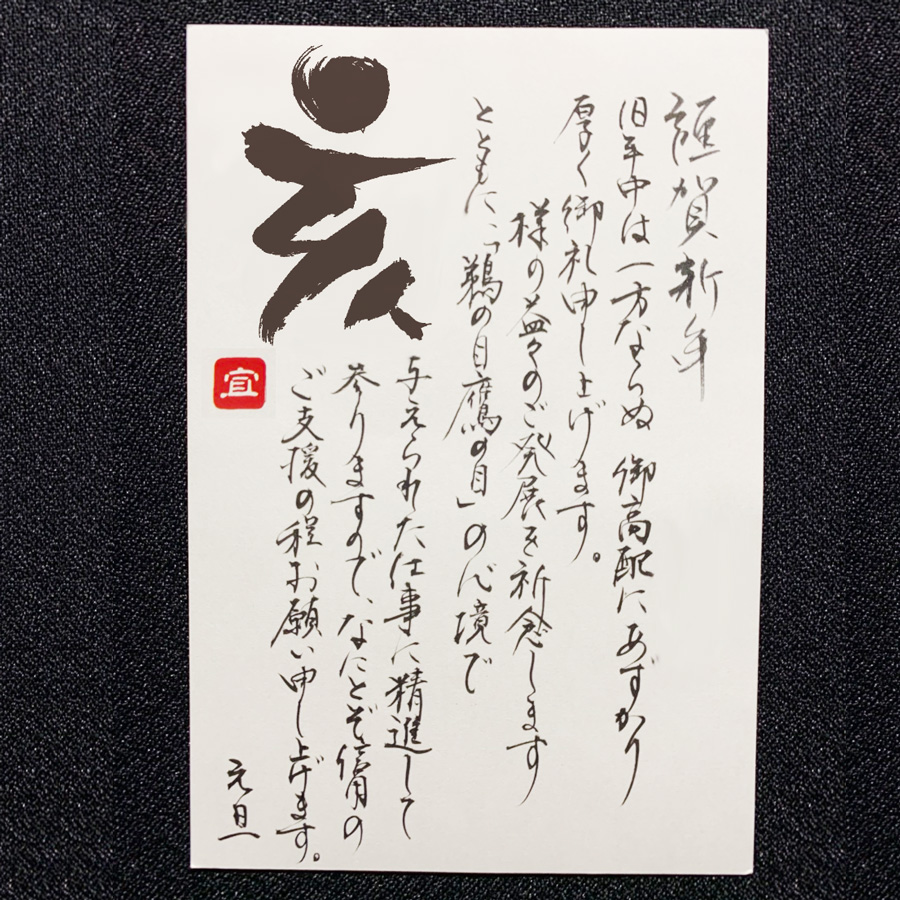 謹賀新年
旧年中は一方ならぬ 御高配にあずかり
厚く御礼申し上げます。
様の益々のご発展を祈念します
とともに、「鵜の目鷹の目」の心境で
与えられた仕事に精進して
参りますので、なにとぞ倍旧の
ご支援の程お願い申し上げます。
元旦
亥
宜